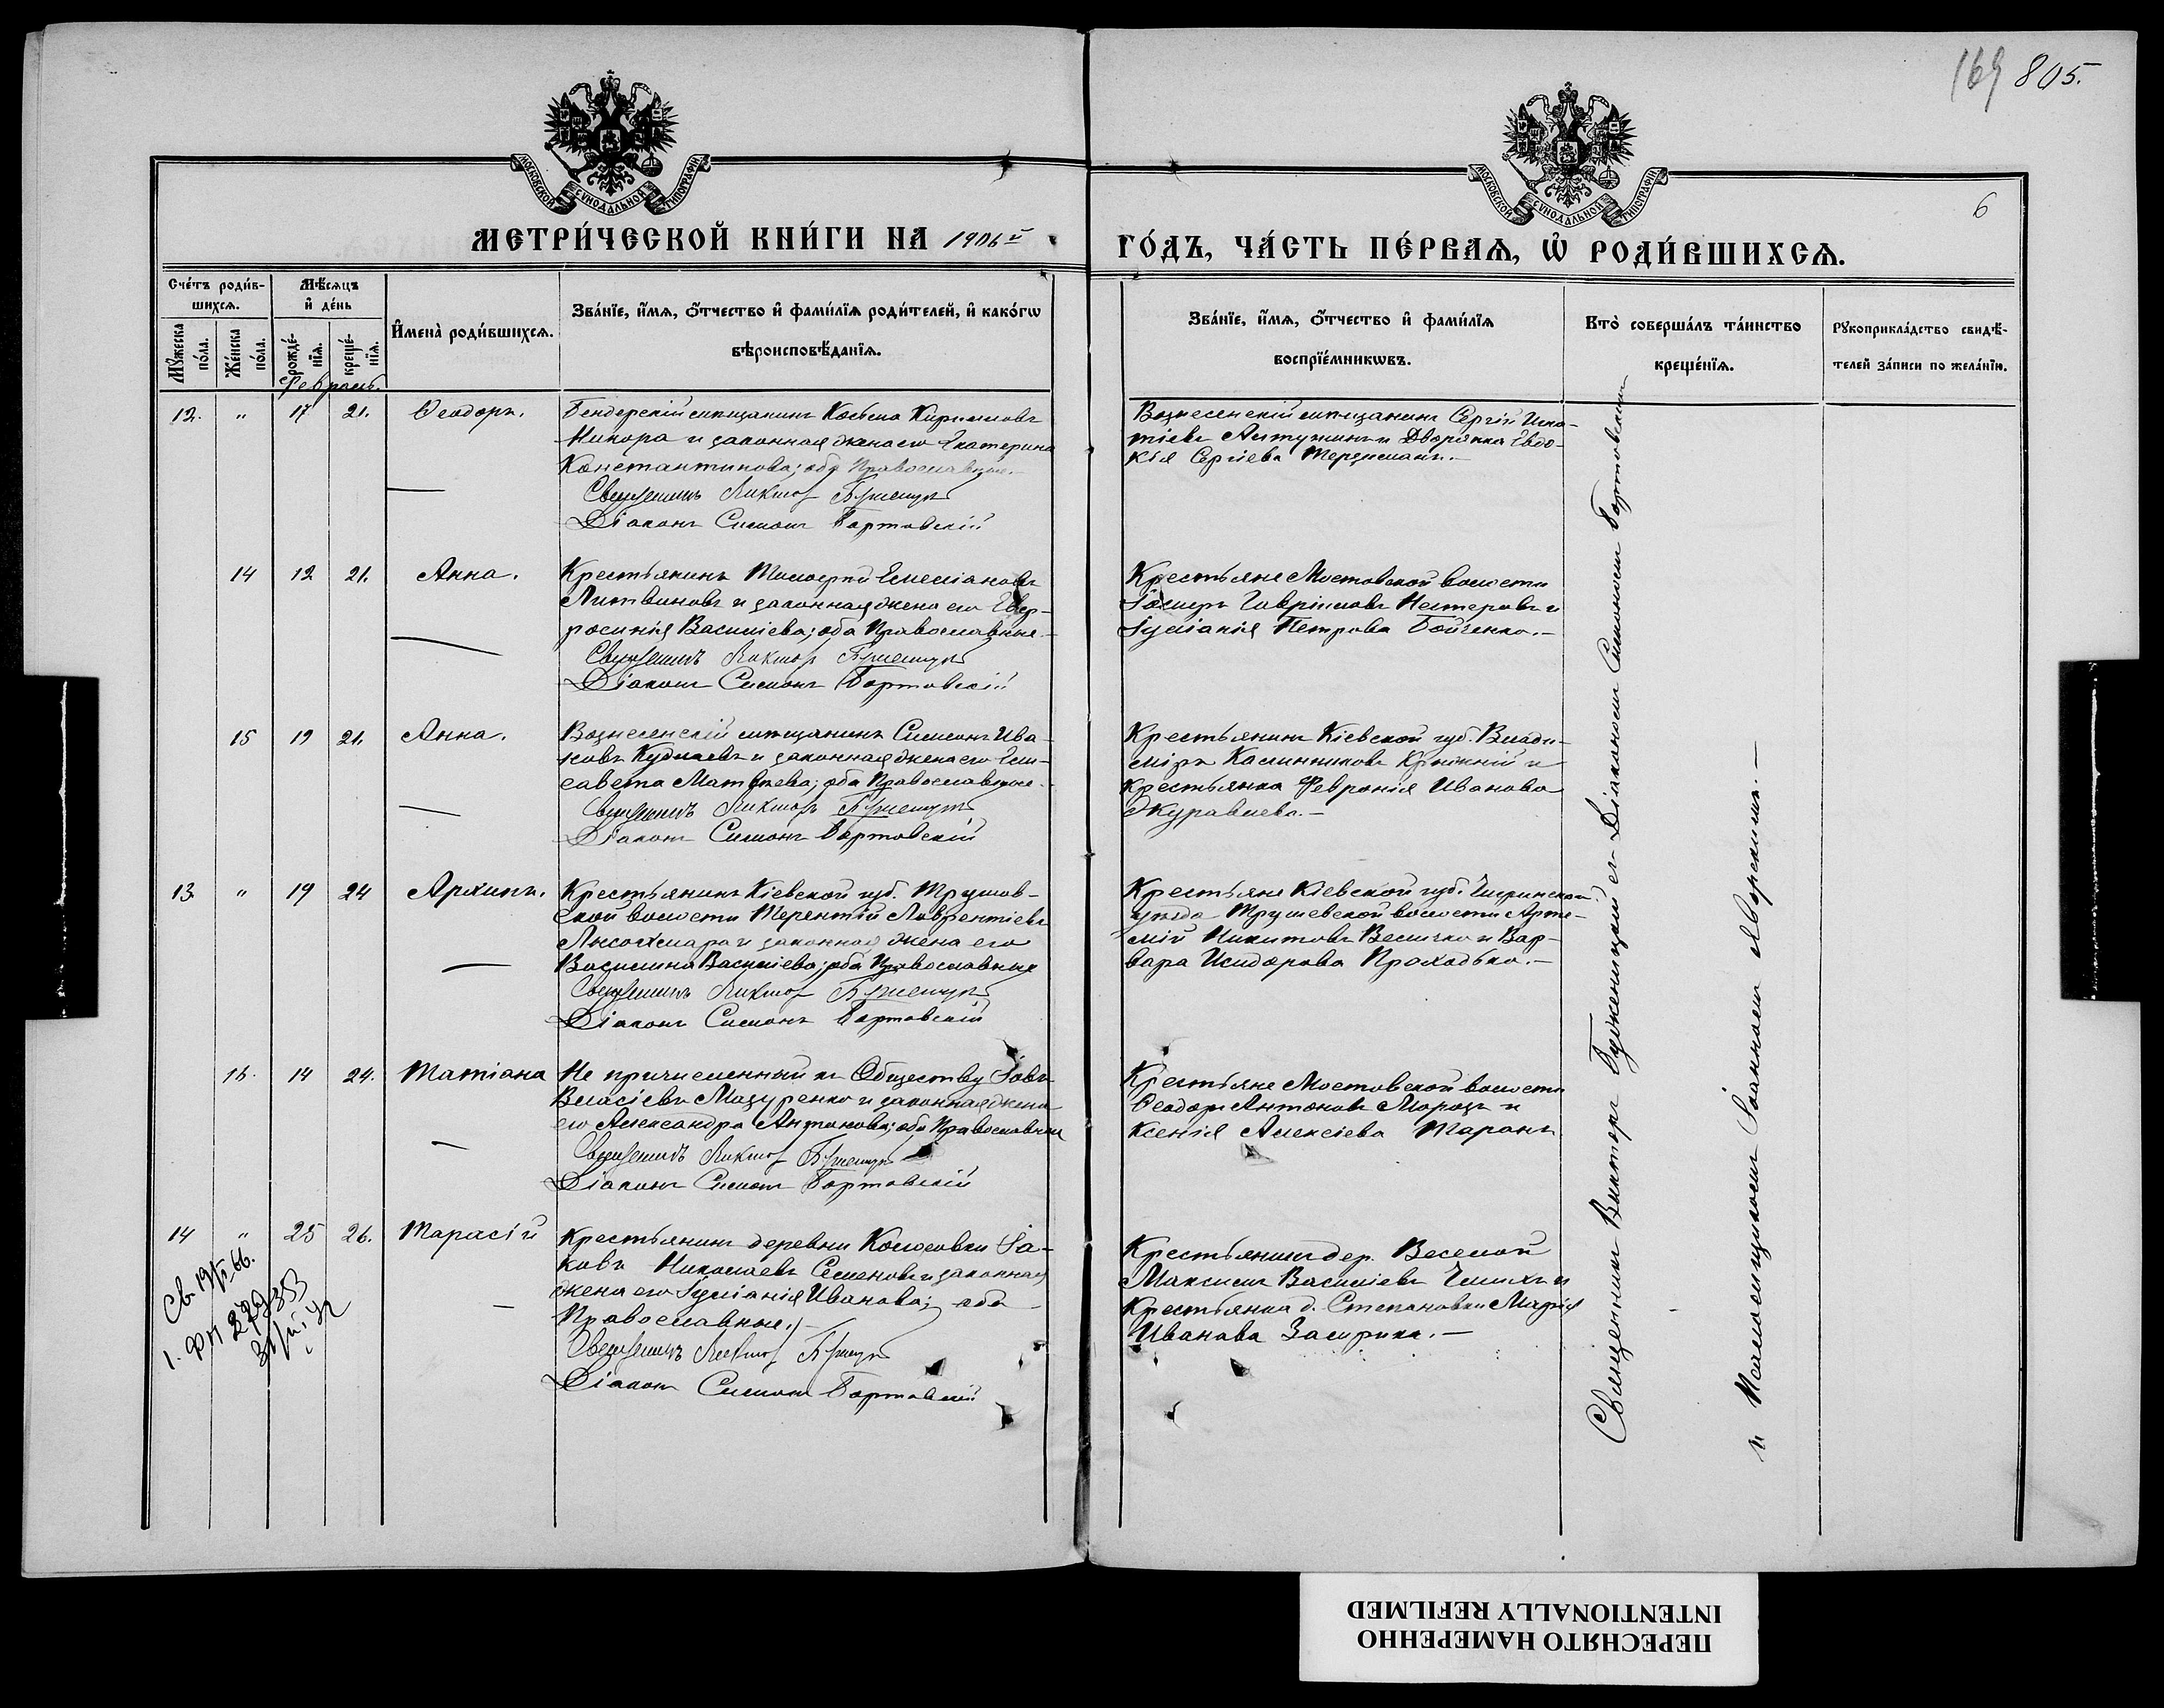 169 805.
6
МОСКОВСКОЙ СѴНОДАЛЬНОЙ ТИПОГРАФІИ
МОСКОВСКОЙ СѴНОДАЛЬНОЙ ТИПОГРАФІИ
МЕТРИ́ЧЕСКОЙ КНИ́ГИ НА 1906й
ГО́ДЪ, ЧА́СТЬ ПЕ́РВАѦ, Ѡ҆ РОДИ́ВШИХСѦ.
Сче́тъ роди́в-
шихсѧ.
Мꙋ́жеска по́ла.
Же́нска по́ла.
Мѣ́сѧцъ
и҆ де́нь
рожде́-
нїѧ.
креще́-
нїѧ.
И҆мена̀ роди́вшихсѧ.
Зва́нїе, и҆́мѧ, ѻ҆́тчество и҆ фами́лїѧ роди́телей, и҆ како́гѡ
вѣроисповѣ́данїѧ.
Зва́нїе, и҆́мѧ, ѻ҆́тчество и҆ фами́лїѧ
воспрїе́мникѡвъ.
Кто̀ соверша́лъ та́инство
креще́нїѧ.
Рꙋкоприкла́дство свидѣ́-
телей за́писи по жела́нїю.
Февраль.
12. " 17 21. Ѳеодоръ.
Бендерскій мѣщанинъ Косьма Кирилловъ
и законная жена его Екатерина
Константинова; оба Православные.
Священникъ Виктор
Діаконъ Симонъ Бортовскій
Вознесенскій мѣщанинъ Сергій Игна-
тіевъ и Дворянка Евдо-
кія Сергіева
14 12 21. Анна.
Крестьянинъ Тимофей Емеліановъ
Литвиновъ и законная жена его Евф-
росинія Василіева; оба Православные.
Священникъ Виктор
Діаконъ Симонъ Бортовскій
Крестьяне Мостовской волости
Іосифъ Гавріиловъ Нестеровъ и
Іуліанія Петрова Бойченко.
15 19 21. Анна.
Вознесенскій мѣщанинъ Симеонъ Ива-
новъ и законная жена его Ели-
савета Матѳеева; оба Православные.
Священникъ Викторъ
Діаконъ Симонъ Бортовскій
Крестьянинъ Кіевской губ. Влади-
міръ Калинниковъ и
крестьянка Февронія Иванова
Журавлева.
13 " 19 24 Архипъ.
Крестьянинъ Кіевской губ. Трушов-
ской волости Терентій Лаврентіевъ
и законная жена его
Василина Василіева; оба Православные
Священникъ Виктор
Діаконъ Симонъ Бортовскій
Крестьяне Кіевской губ. Чигринскаго
уѣзда Трушевской волости Арте-
мій Никитовъ Величко и Вар-
вара Исидорова Проходько.
16. 14 24. Татіана
Не причисленный къ Обществу Іовъ
Власіевъ Мазуренко и законная жена
его Александра Антонова; оба Православные
Священникъ Виктор
Діаконъ Симонъ Бортовскій
Крестьяне Мостовской волости
Ѳеодоръ Антоновъ Морозъ и
Ксенія Алексіева Таранъ
14 " 25 26. Тарасій
Крестьянинъ деревни Колосовки Іа-
ковъ Николаевъ Семеновъ и законная
жена его Іуліанія Иванова; оба
Православные.
Священникъ Виктор
Діаконъ Симонъ Бортовскій
Крестьянинъ дер. Веселой
Максимъ Василіевъ и
Крестьянка д. Степановки Марія
Иванова
Священникъ Викторъ съ Діакономъ Симономъ Бортовскимъ
и Псаломщикомъ Іоанномъ Яворскимъ.
ПЕРЕСНЯТО НАМЕРЕННО
INTENTIONALLY REFILMED